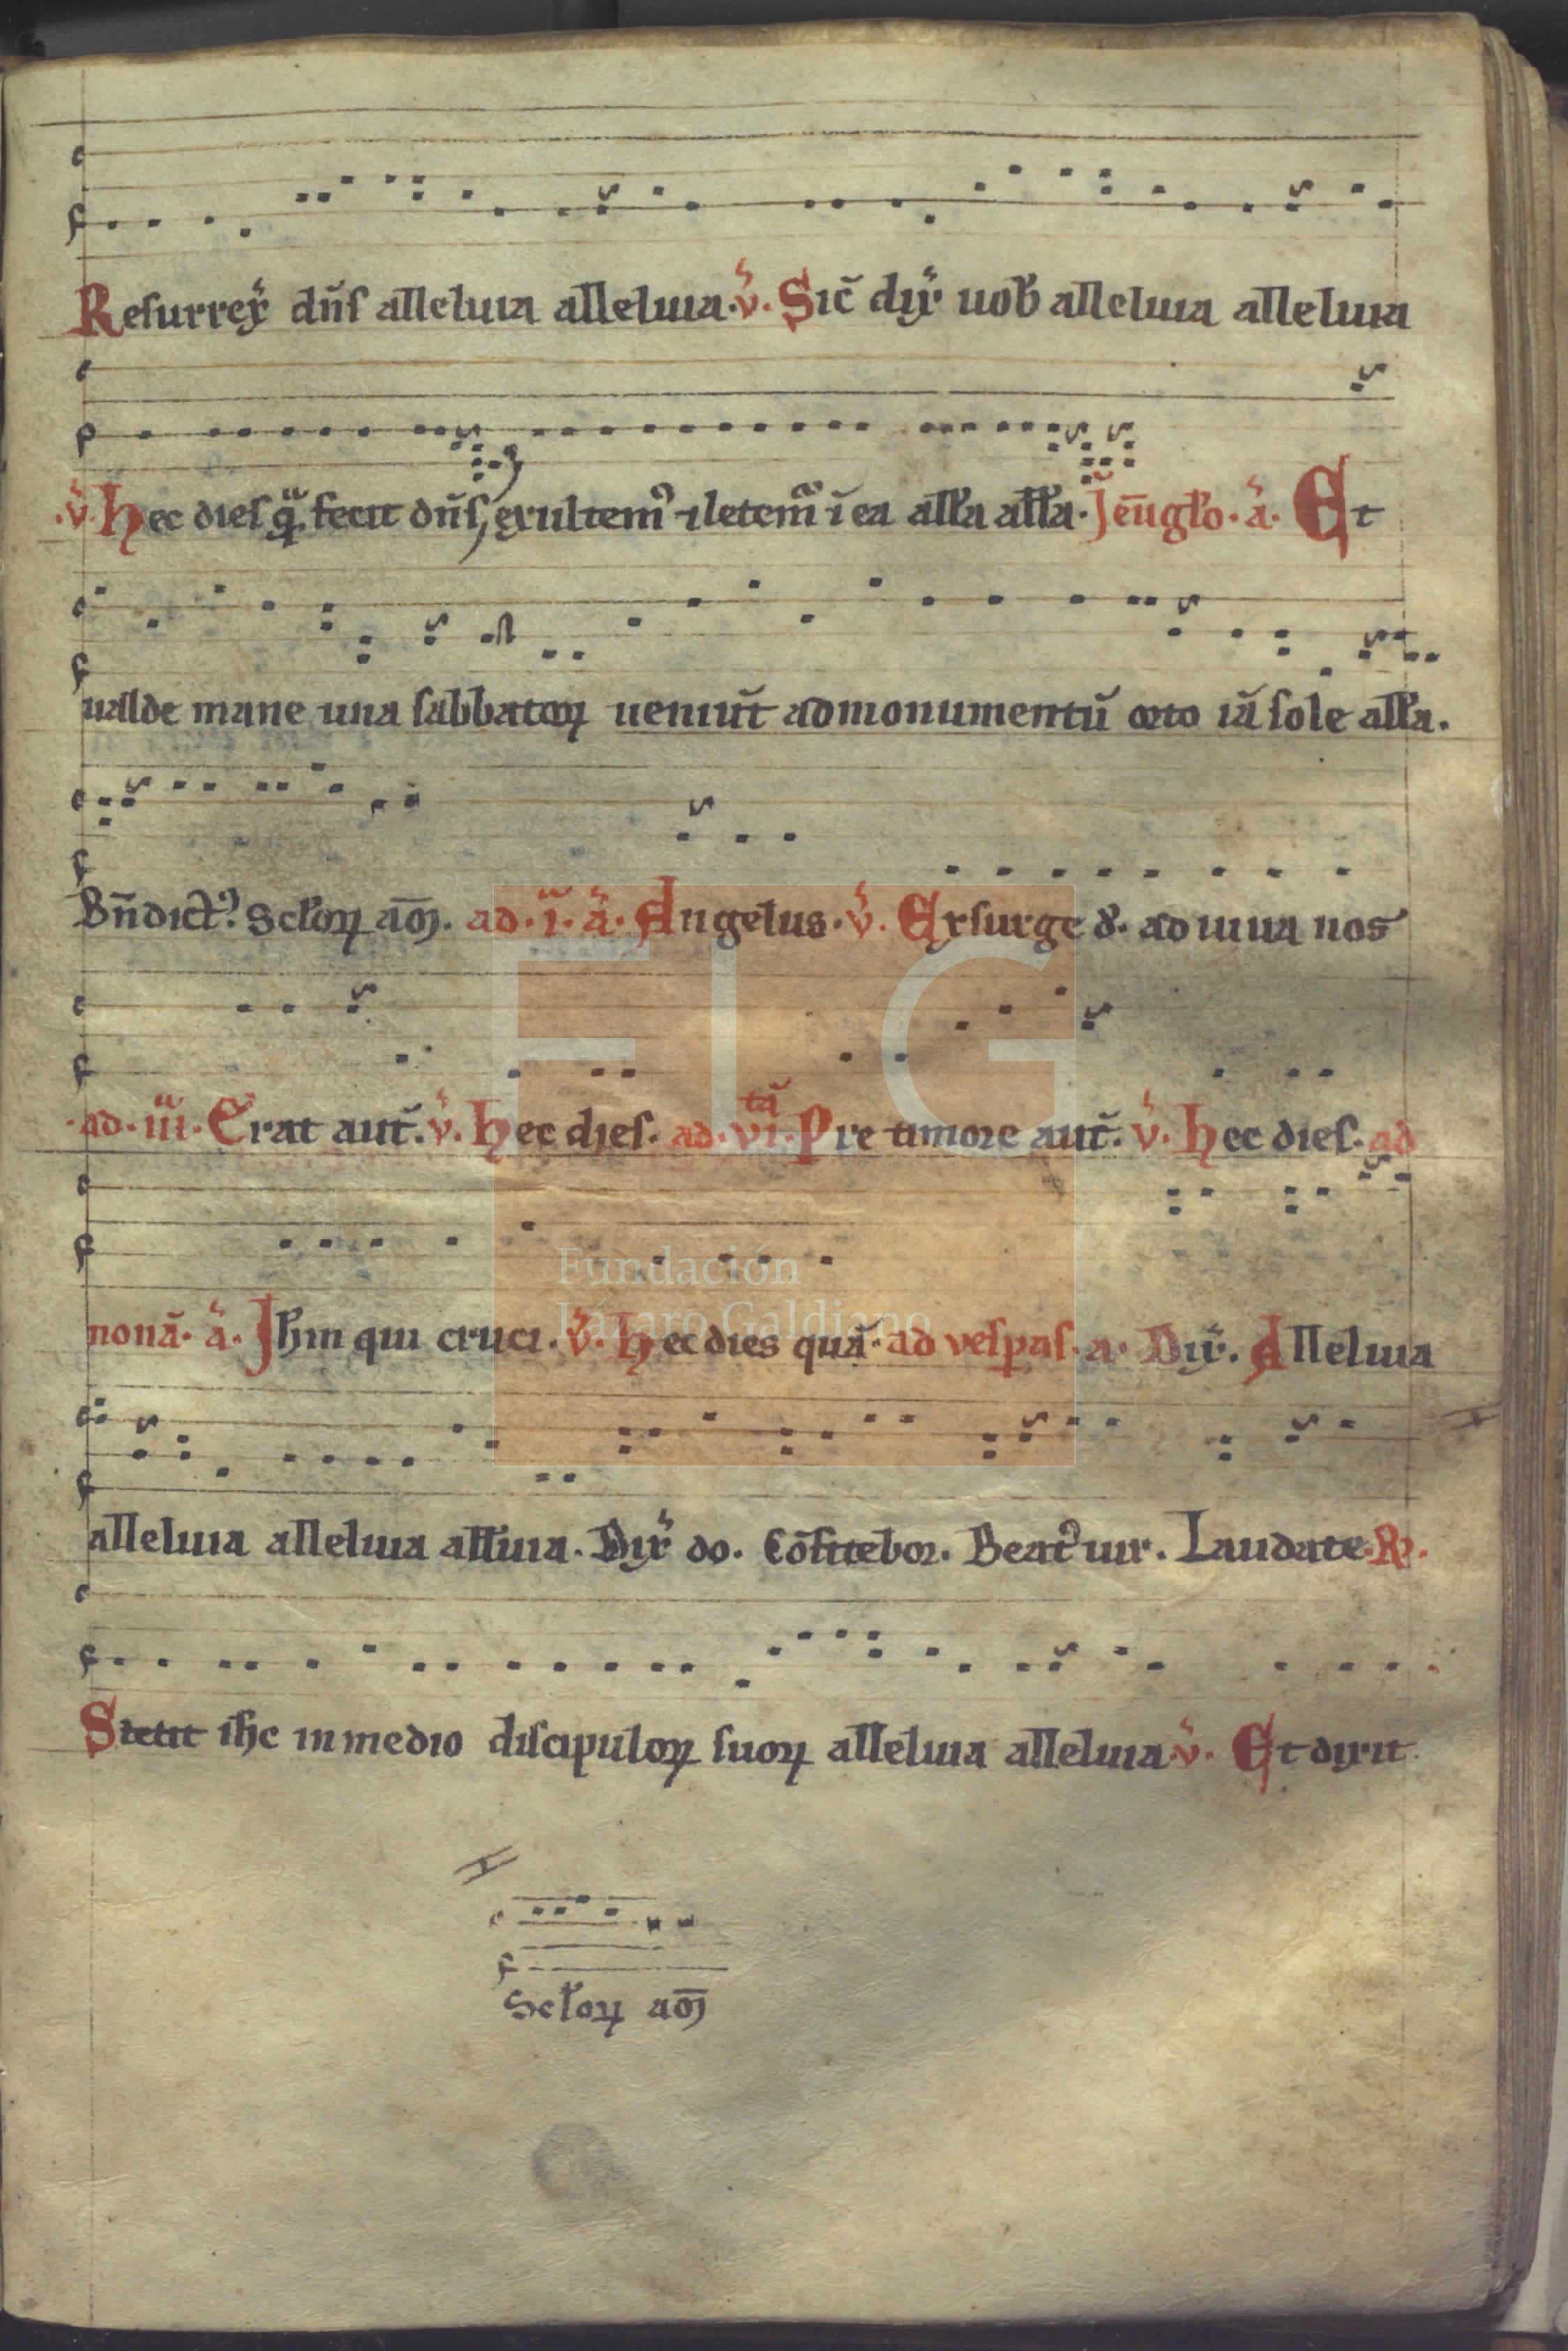 Resurrex̃ dñs alleluia alleluia. ℣. Sic̃ dix̃ uob̃ alleluia alleluia
℣. Hec dies q̃ fecit dñs, exultemꝰ ⁊ letem̃ ĩ ea all̃a all̃a. In eũgl̃o. a. Et
ualde mane una sabbatoꝝ ueniũt ad monumentũ orto iã sole all̃a.
Bñdict̃ꝰ. Scl̃oꝝ am̃. ad. i. a. Angelus. ℣. Exsurge x̃. adiuua nos
ad. iii. Erat aut̃. ℣. Hec dies. ad. vi. tã Pre timore aut̃. ℣. Hec dies. ad
nonã. a. Ihm qui cruci. ℣. Hec dies quã. ad vesꝑas. a. Dix̃. Alleluia
alleluia alleluia all̃uia. Dix̃ do. Cõfitebor. Beatꝰ uir. Laudate. ℟.
Stetit ihc in medio discipuloꝝ suoꝝ alleluia alleluia. ℣. Et dixit
Scl̃oꝝ am̃
FLG
Fundación
Lázaro Galdiano